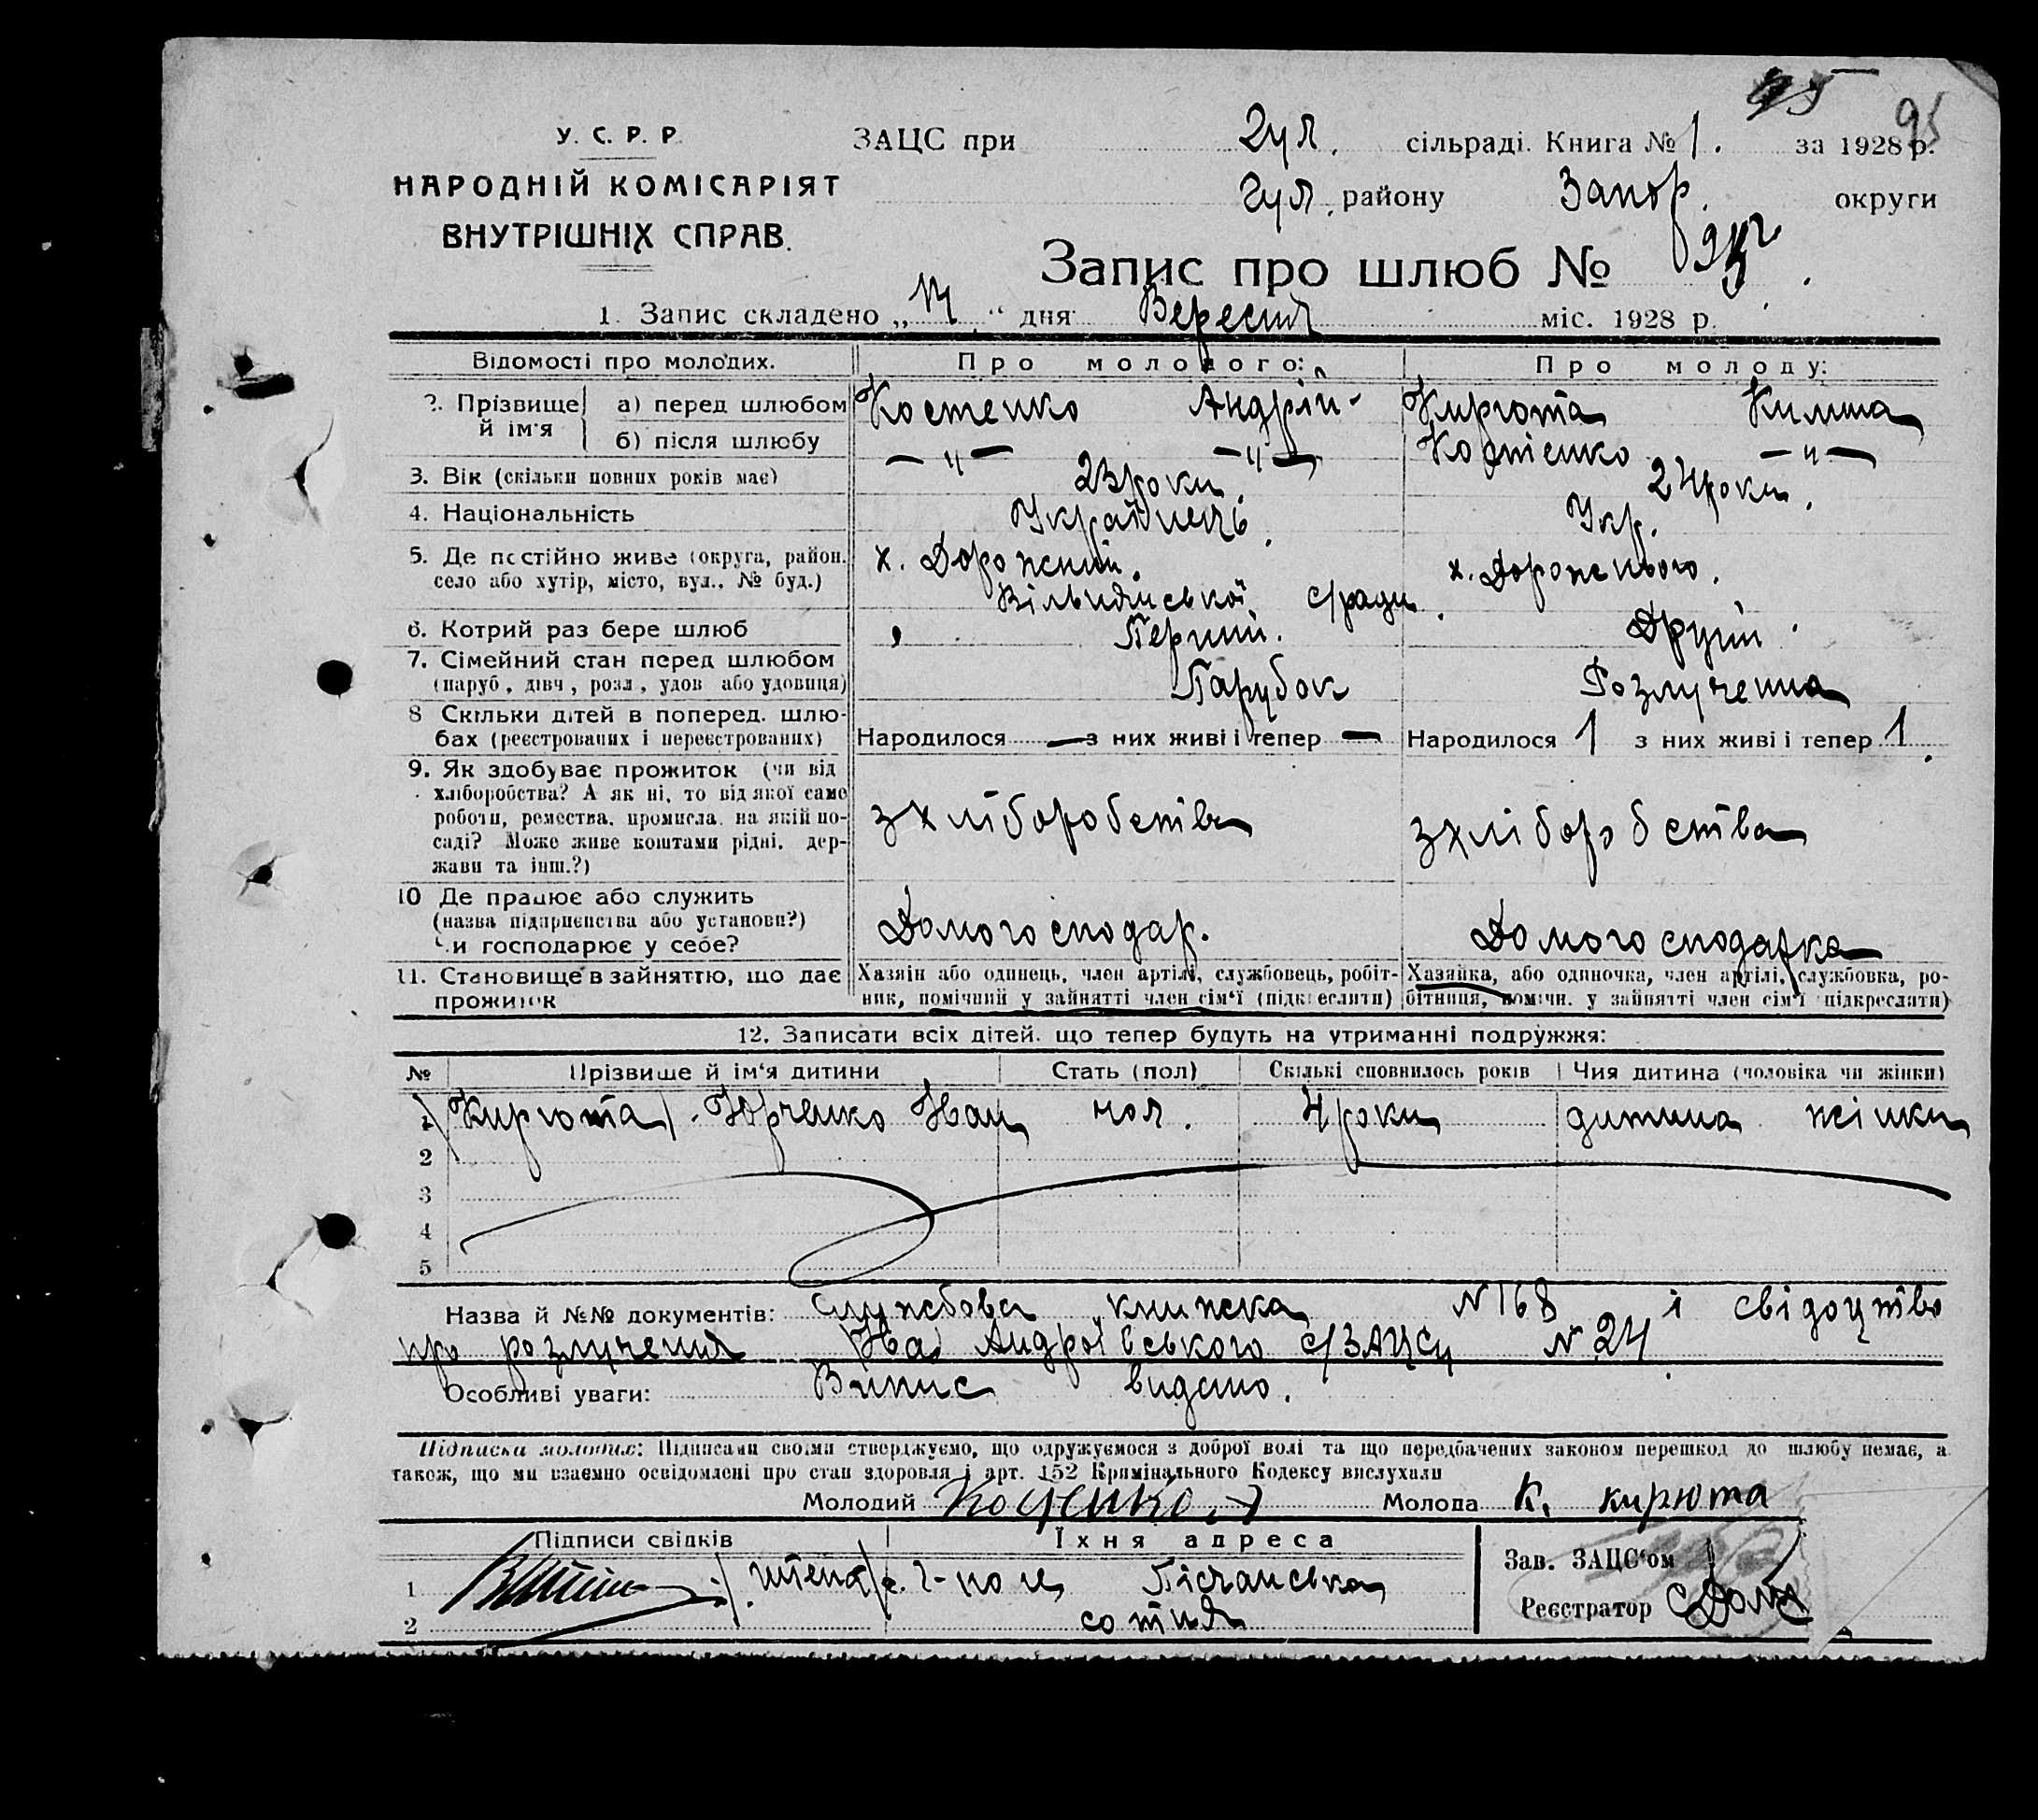 95
У. С. Р. Р.
ЗАЦС при Гул. сільраді. Книга № 1. за 1928 р.
95
НАРОДНІЙ КОМІСАРІЯТ
Гул. району Запор. округи
ВНУТРІШНІХ СПРАВ.
Запис про шлюб №
1. Запис складено „ “ дня Вересня міс. 1928 р.
Відомості про молодих. Про молодого: Про молоду:
2. Прізвище й ім'я а) перед шлюбом Костенко Андрій Кирюта Килина
б) після шлюбу — " — — " — Костенко — " —
3. Вік (скільки повних років має) 23 роки. 24 роки.
4. Національність Українець. Укр.
5. Де постійно живе (округа, район, х. Дорожний. х. Дорожнього.
село або хутір, місто, вул., № буд.) с/ради.
6. Котрий раз бере шлюб Перший. Другий.
7. Сімейний стан перед шлюбом
(паруб., дівч., розл., удов. або удовиця) Парубок Розлучена
8. Скільки дітей в поперед. шлю-
бах (реєстрованих і нереєстрованих) Народилося — з них живі і тепер — Народилося 1 з них живі і тепер 1.
9. Як здобуває прожиток (чи від
хліборобства? А як ні, то від якої саме
роботи, ремества, промисла, на якій по- з хліборобства з хліборобства
саді? Може живе коштами рідні, дер-
жави та інш.?)
10. Де працює або служить
(назва підприємства або установи?) Домогосподар. Домогосподарка
Чи господарює у себе?
11. Становище в зайняттю, що дає Хазяін або одинець, член артілі, службовець, робіт- Хазяйка, або одиночка, член артілі, службовка, ро-
прожиток ник, помічний у зайнятті член сім'ї (підкреслити) бітниця, помічн. у зайнятті член сім'ї (підкреслити)
12. Записати всіх дітей, що тепер будуть на утриманні подружжя:
№ Прізвище й ім'я дитини Стать (пол) Скількі сповнилось років Чия дитина (чоловіка чи жінки)
1 (Кирюта) Юрченко Іван чол. 4 роки дитина жінки
2
3
4
5
Назва й №№ документів: службова книжка N 168 і свідоцтво
про розлучення с/ЗАЦСу N 24
Особливі уваги: Випис видано.
Підписка молодих: Підписами своїми стверджуємо, що одружуємося з доброї волі та що передбачених законом перешкод до шлюбу немає, а
також, що ми взаємно освідомлені про стан здоровля і арт. 152 Кримінального Кодексу вислухали
Молодий Молода К. кирюта
Підписи свідків Їхня адреса
Зав. ЗАЦС'ом
1 г-поле Пісчанська
Реєстратор
2 сотня